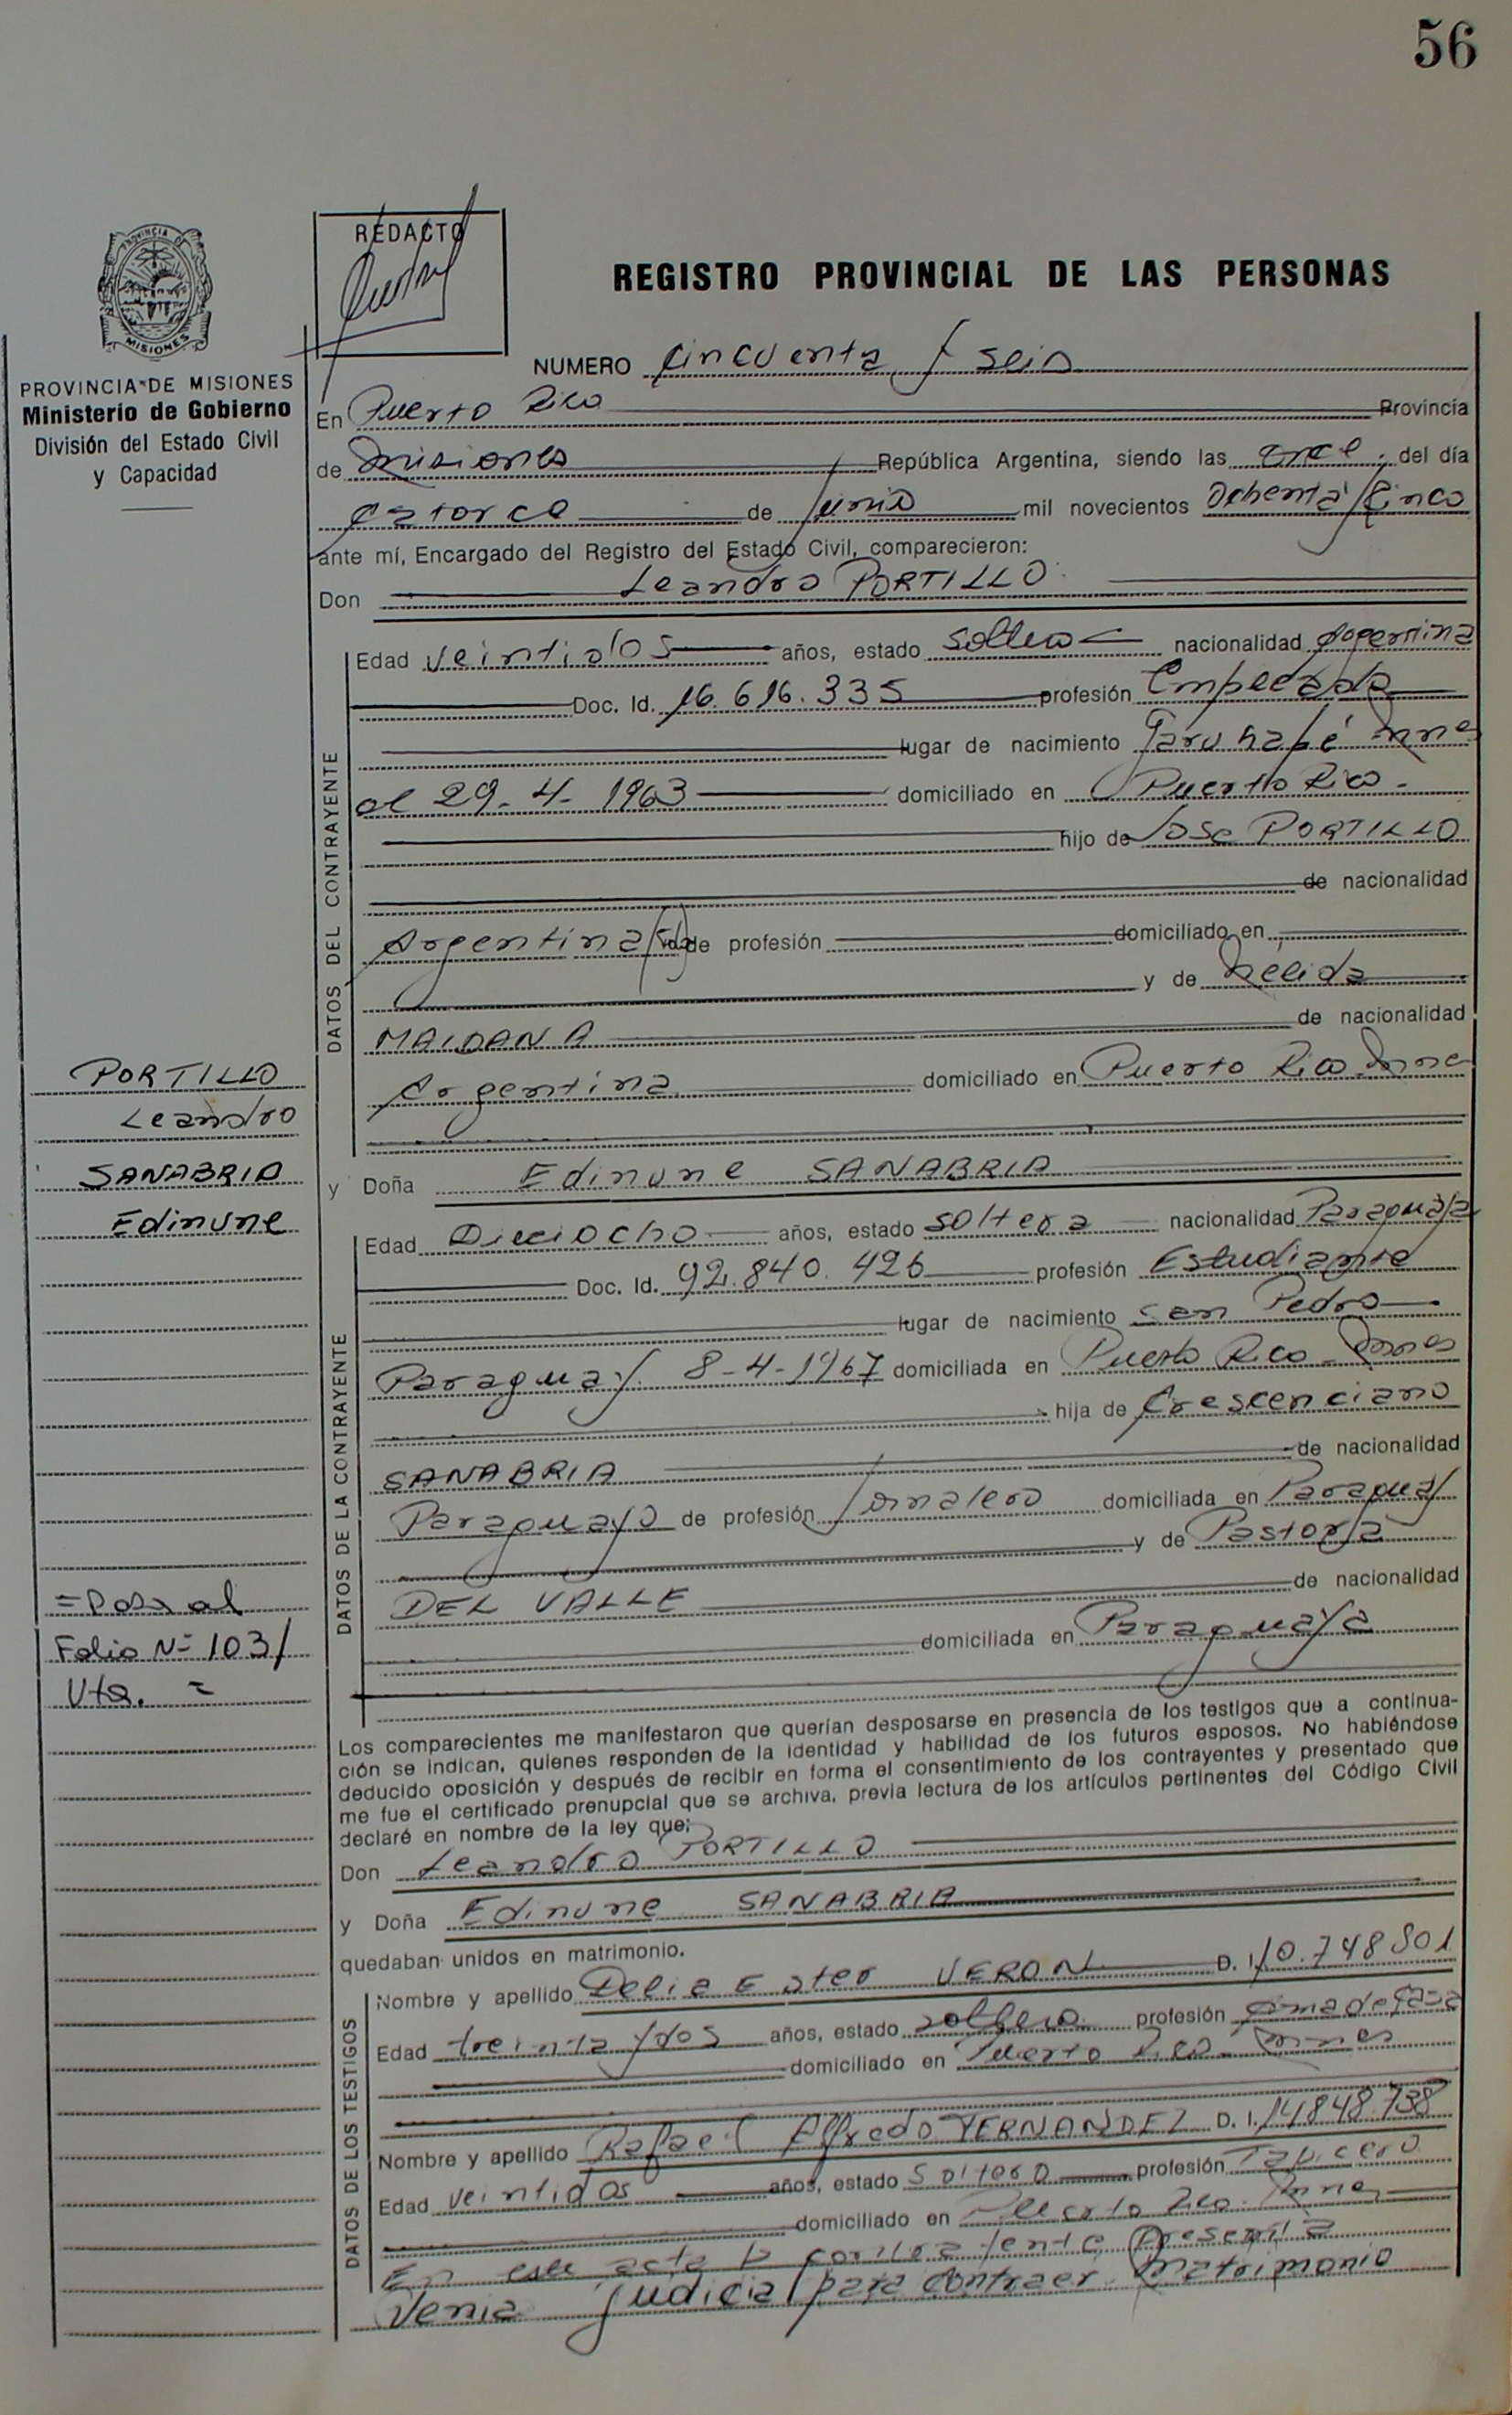 56
PROVINCIA DE MISIONES
REDACTO
REGISTRO PROVINCIAL DE LAS PERSONAS
NUMERO Cincuenta y seis
PROVINCIA DE MISIONES
Ministerio de Gobierno
División del Estado Civil
y Capacidad
En Puerto Rico Provincia
de Misiones República Argentina, siendo las once del día
catorce de junio mil novecientos Ochenta y Cinco
ante mí, Encargado del Registro del Estado Civil, comparecieron:
Don Leandro PORTILLO
DATOS DEL CONTRAYENTE
Edad veintidos años, estado soltero nacionalidad Argentina
Doc. Id. 16.616.335 profesión Empleado
lugar de nacimiento Garuhapé Mnes
el 29-4-1963 domiciliado en Puerto Rico -
hijo de Jose PORTILLO
de nacionalidad
Argentina de profesión domiciliado en
y de Nélida
MAIDANA de nacionalidad
Argentina domiciliado en Puerto Rico Mnes
PORTILLO
Leandro
SANABRIA
Edinune
y Doña Edinune SANABRIA
DATOS DE LA CONTRAYENTE
Edad Dieciocho años, estado soltera nacionalidad Paraguaya
Doc. Id. 92.840.426 profesión Estudiante
lugar de nacimiento San Pedro
Paraguay 8-4-1967 domiciliada en Puerto Rico - Mnes
hija de Crescenciano
SANABRIA de nacionalidad
Paraguayo de profesión Jornalero domiciliada en Paraguay
y de Pastora
DEL VALLE de nacionalidad
domiciliada en Paraguaya
=Pasa al
Folio Nº 103/
Vta. =
Los comparecientes me manifestaron que querían desposarse en presencia de los testigos que a continua-
ción se indican, quienes responden de la identidad y habilidad de los futuros esposos. No habiéndose
deducido oposición y después de recibir en forma el consentimiento de los contrayentes y presentado que
me fue el certificado prenupcial que se archiva, previa lectura de los artículos pertinentes del Código Civil
declaré en nombre de la ley que:
Don Leandro PORTILLO
y Doña Edinune SANABRIA
quedaban unidos en matrimonio.
DATOS DE LOS TESTIGOS
Nombre y apellido Delia Ester VERON D. I. 10.748801
Edad treinta y dos años, estado soltera profesión Ama de Casa
domiciliado en Puerto Rico - Mnes
Nombre y apellido Rafael Alfredo FERNANDEZ D. I. 14848.738
Edad veintidos años, estado Soltero profesión Tapicero
domiciliado en Puerto Rico. Mnes
En este acto la contrayente Presenta
Venia judicial para contraer Matrimonio